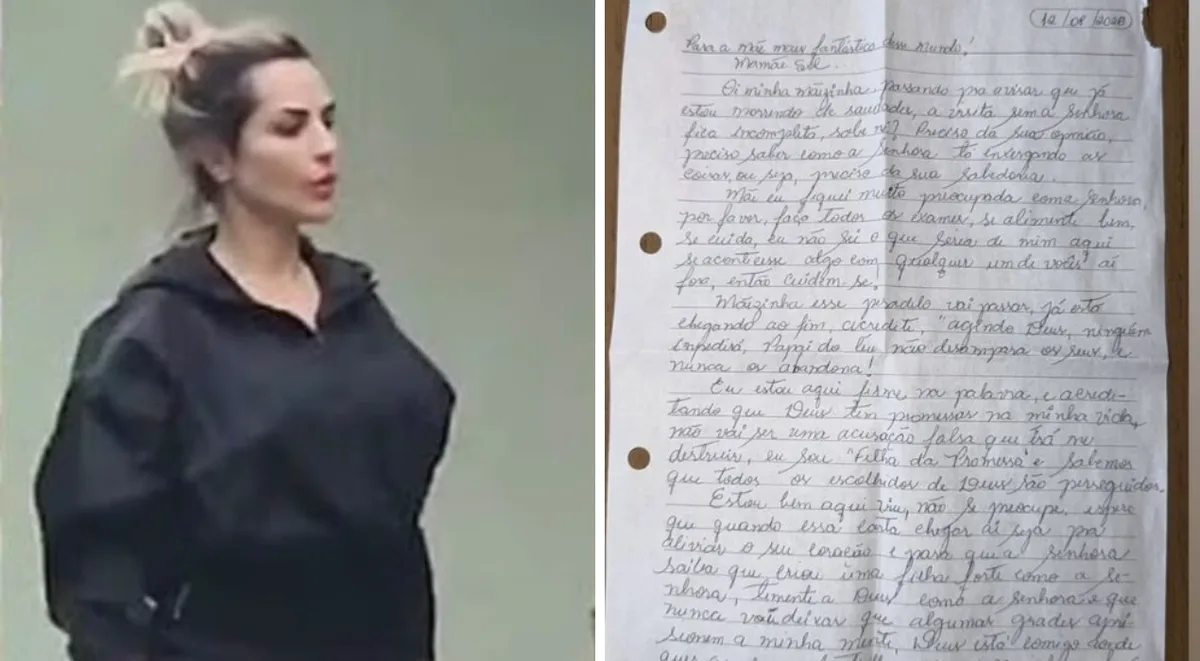 12/08/2020
Para a mãe mais fantástica desse mundo!
Mamãe Sol...
Oi minha mãezinha, passando pra avisar que já
estou morrendo de saudade, a visita sem a senhora
fica incompleta, sabe né? Preciso da sua opinião,
preciso saber como a senhora tá enxergando as
coisas, ou seja, preciso da sua sabedoria.
Mãe eu fiquei muito preocupada com a senhora,
por favor, faça todos os exames, se alimente bem,
se cuida, eu não sei o que seria de mim aqui
se acontecesse algo com qualquer um de vocês aí
fora, então cuidem se.
Mãezinha esse pesadelo vai passar, já está
chegando ao fim, acredite, "agindo Deus, ninguém
impedirá, Papai do Céu não desampara os seus, e
nunca os abandona!
Eu estou aqui firme na palavra, e acredi-
tando que Deus tem promessas na minha vida,
não vai ser uma acusação falsa que irá me
destruir, eu sou "Filha da Promessa" e sabemos
que todos os escolhidos de Deus são perseguidos.
Estou bem aqui viu, não se preocupe, espero
que quando essa carta chegar aí seja pra
aliviar o seu coração e para que a senhora
saiba que criou uma filha forte como a se-
nhora, temente a Deus como a senhora e que
nunca vai deixar que algumas grades apri-
sionem a minha mente, Deus está comigo desde
que